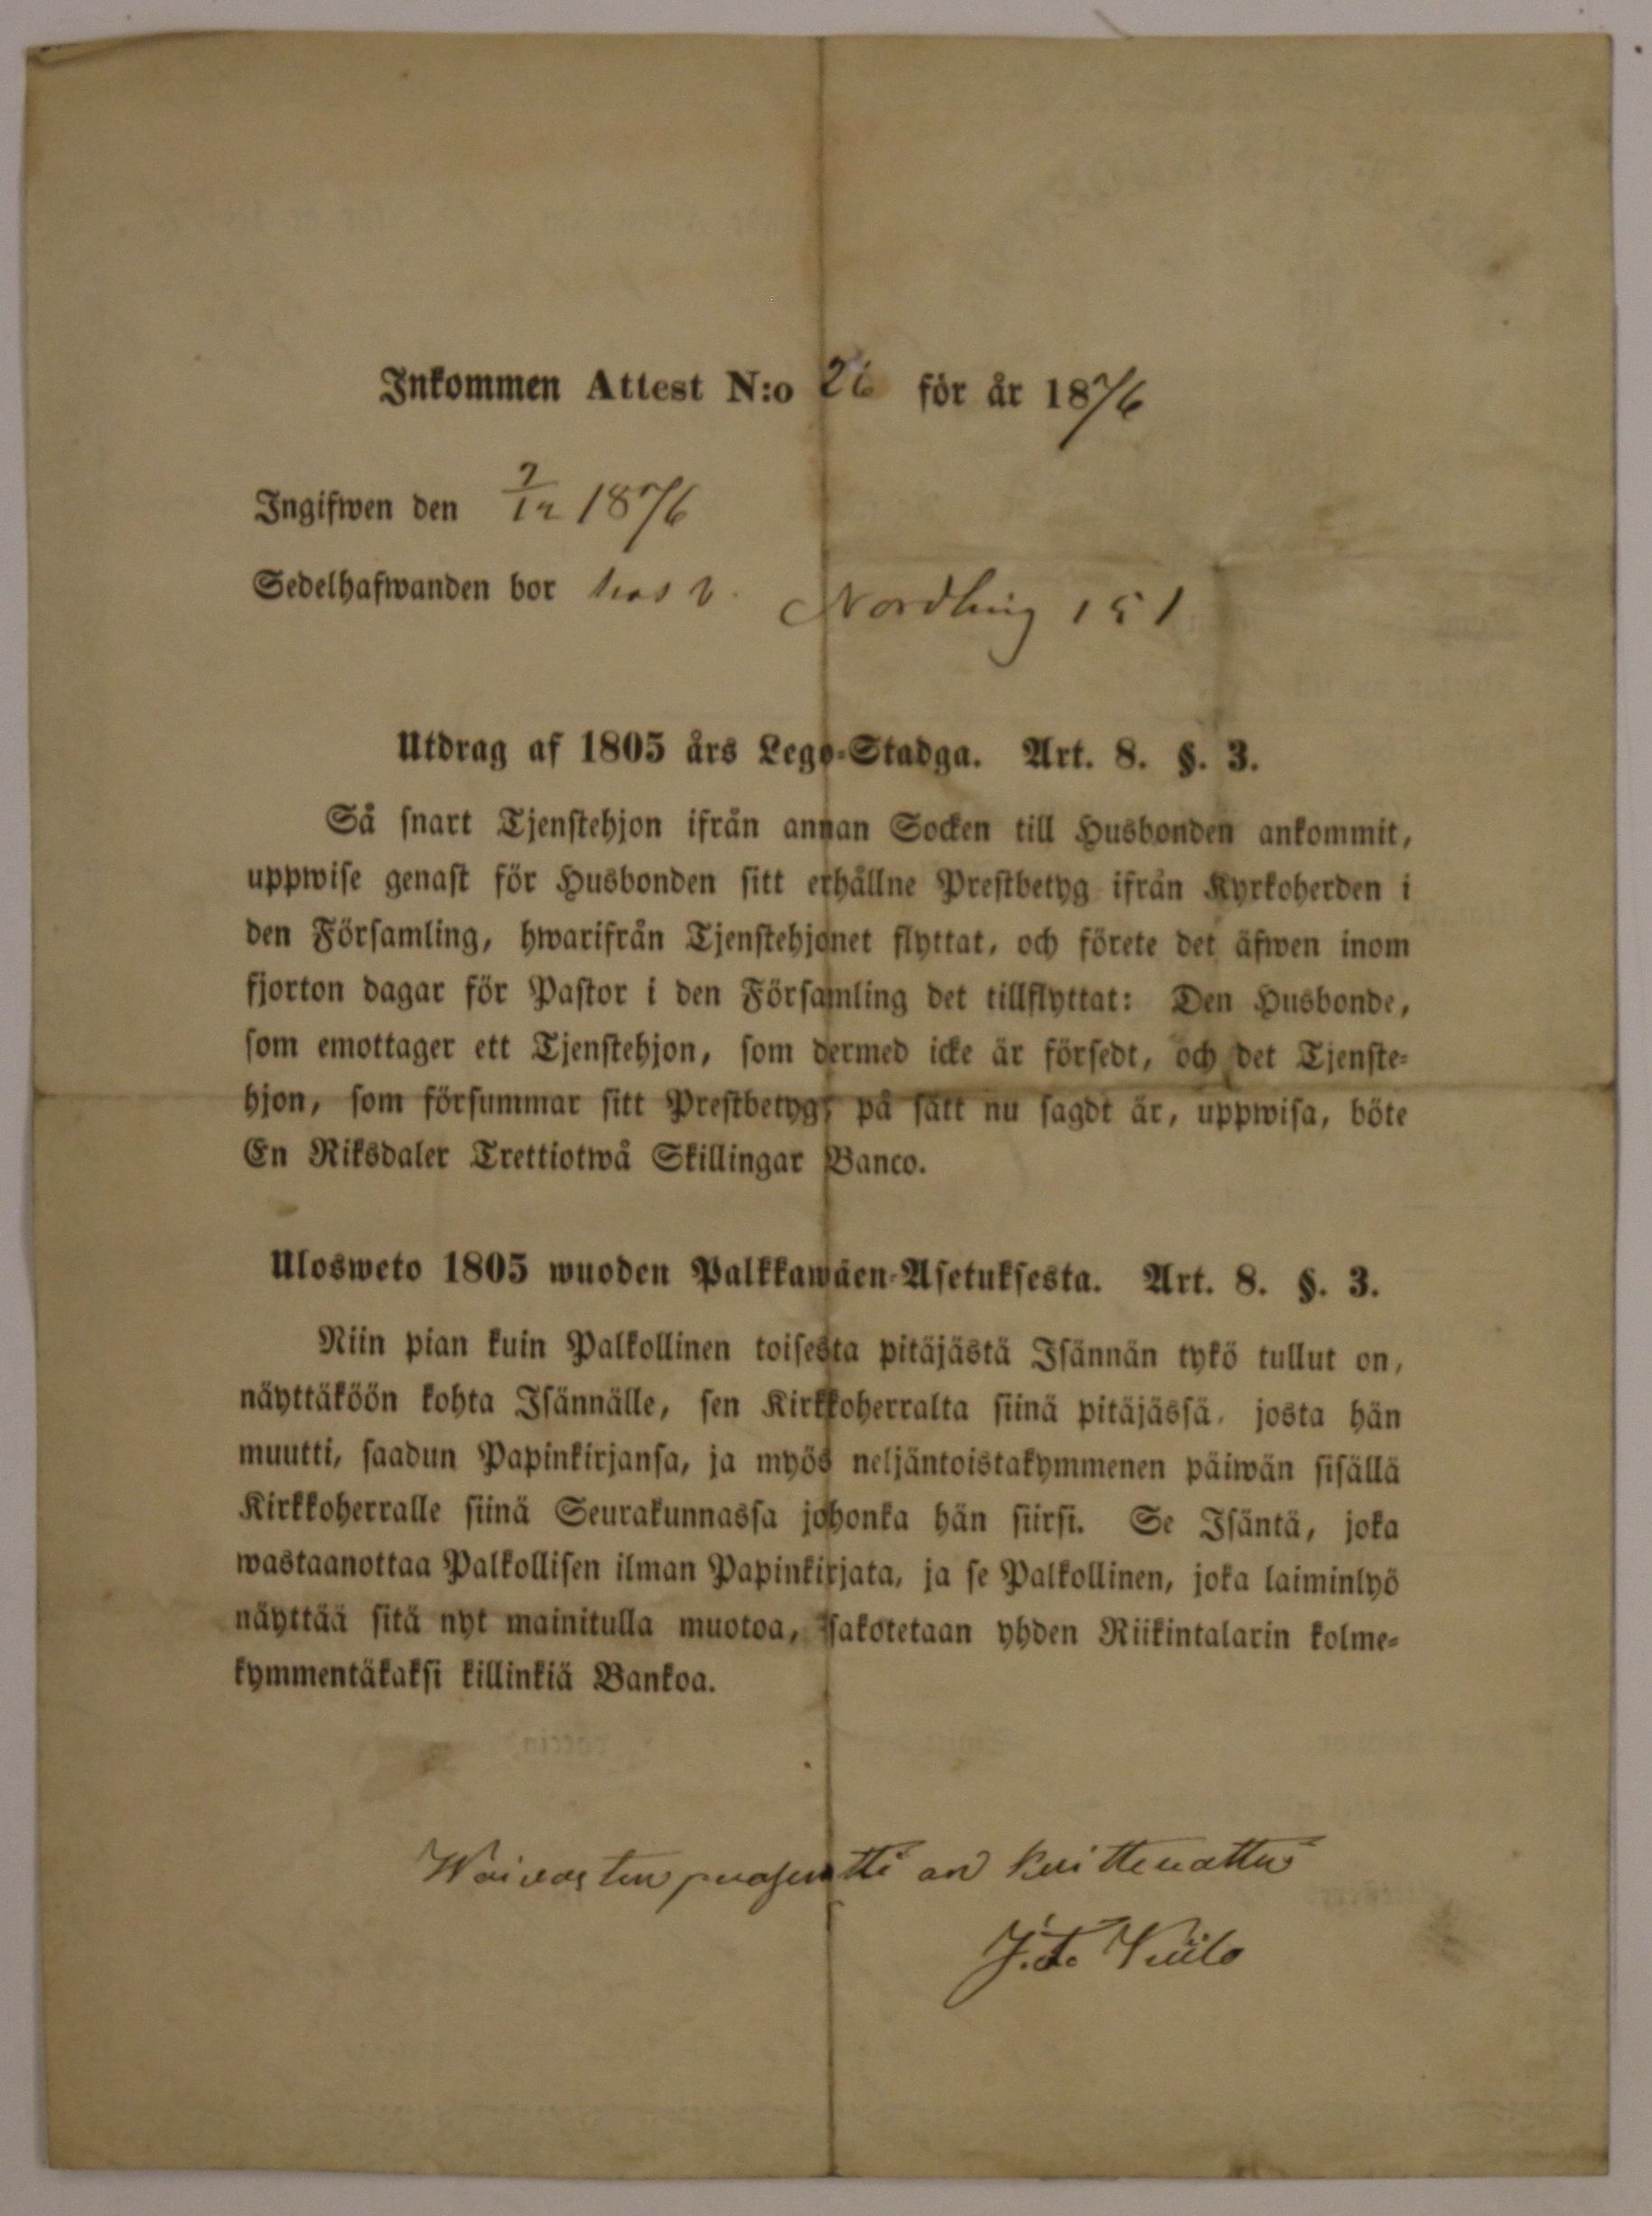 Inkommen Attest N:o 26 för år 1876
Ingifwen den 7/12 1876
Sedelhafwanden bor hos v. Nordling 151
Utdrag af 1805 års Lego-Stadga. Art. 8. §. 3.
Så snart Tjenstehjon ifrån annan Socken till Husbonden ankommit,
uppwise genast för Husbonden sitt erhållne Prestbetyg ifrån Kyrkoherden i
den Församling, hwarifrån Tjenstehjonet flyttat, och förete det äfwen inom
fjorton dagar för Pastor i den Församling det tillflyttat: Den Husbonde,
som emottager ett Tjenstehjon, som dermed icke är försedt, och det Tjenste-
hjon, som försummar sitt Prestbetyg, på sätt nu sagdt är, uppwisa, böte
En Riksdaler Trettiotwå Skillingar Banco.
Ulosweto 1805 wuoden Palkkawäen-Asetuksesta. Art. 8. §. 3.
Niin pian kuin Palkollinen toisesta pitäjästä Isännän tykö tullut on,
näyttäköön kohta Isännälle, sen Kirkkoherralta siinä pitäjässä, josta hän
muutti, saadun Papinkirjansa, ja myös neljäntoistakymmenen päiwän sisällä
Kirkkoherralle siinä Seurakunnassa johonka hän siirsi. Se Isäntä, joka
wastaanottaa Palkollisen ilman Papinkirjata, ja se Palkollinen, joka laiminlyö
näyttää sitä nyt mainitulla muotoa, sakotetaan yhden Riikintalarin kolme-
kymmentäkaksi killinkiä Bankoa.
Waivasten prosentti on kuittenattu